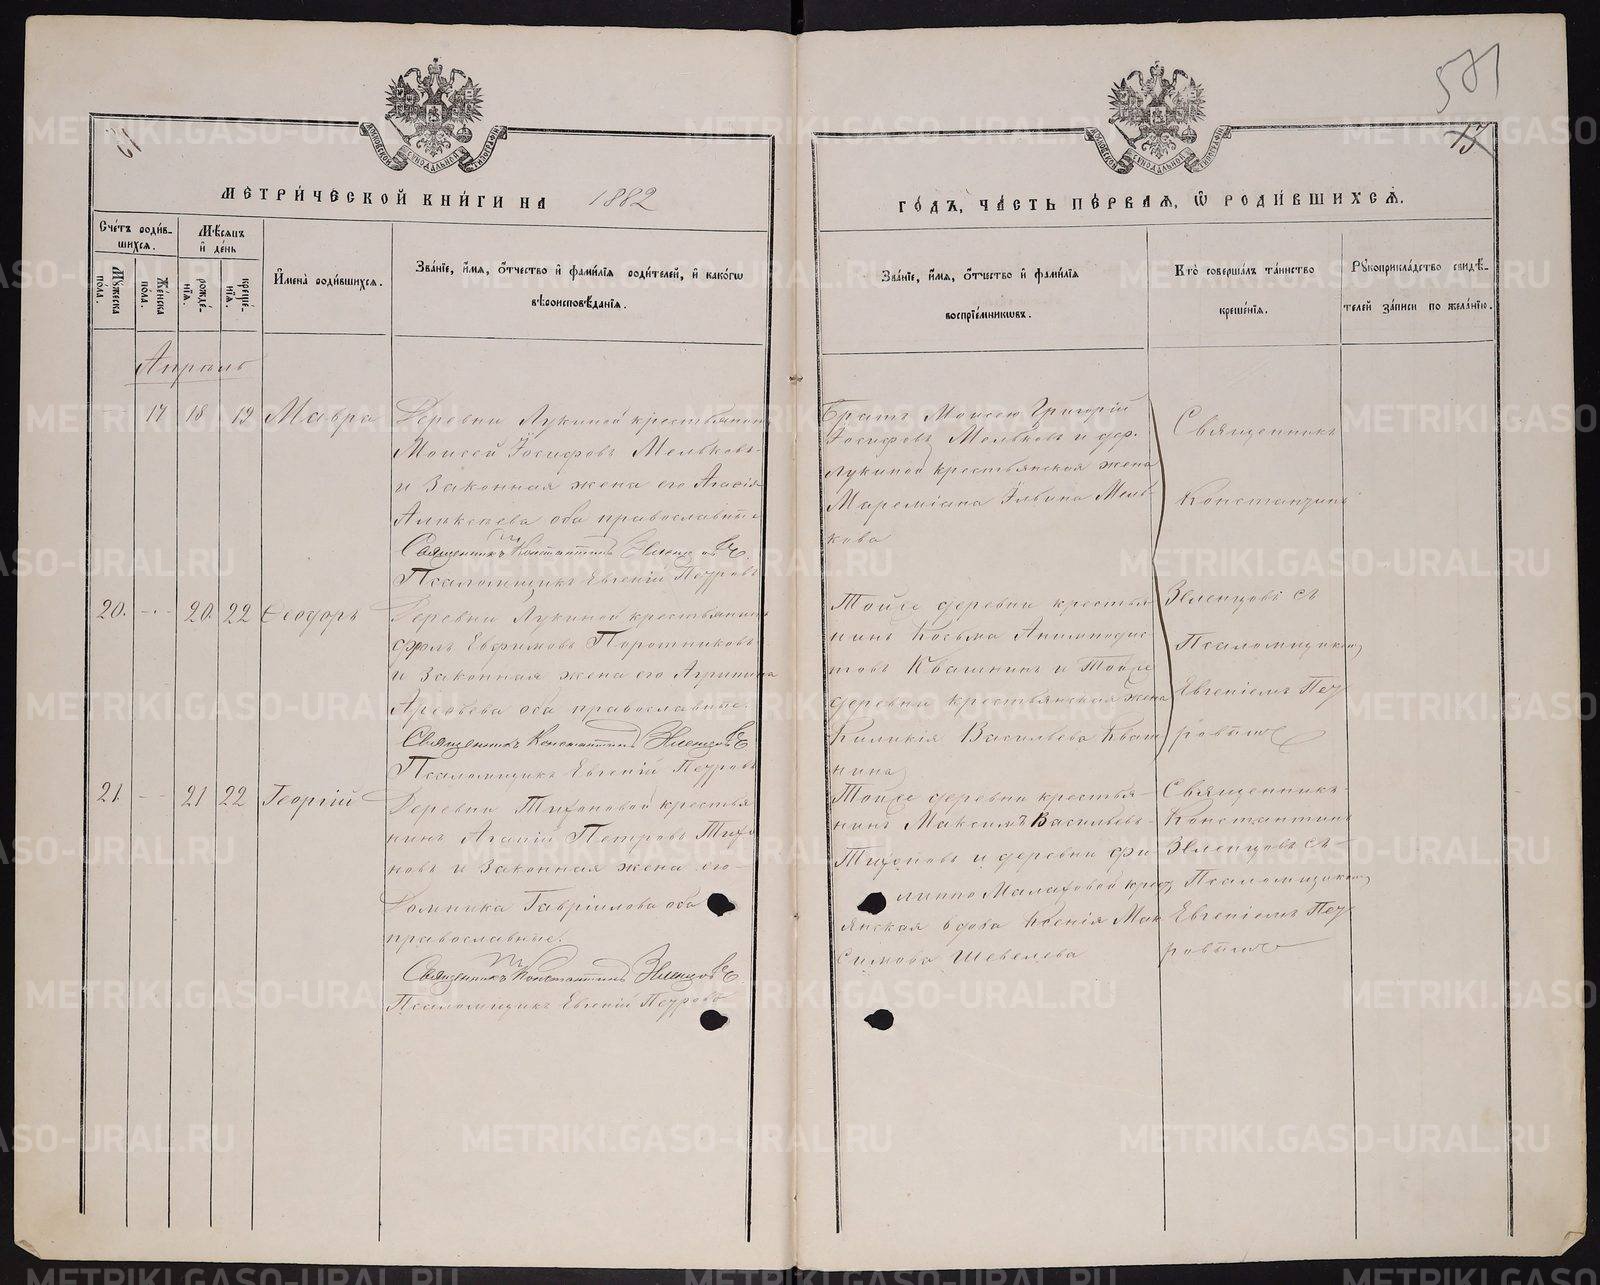 501
13
МЕТРИЧЕСКОЙ КНИГИ НА 1882
ГОДЪ, ЧАСТЬ ПЕРВАЯ, Ѡ РОДИВШИХСЯ.
Счетъ родившихся.
Мужеска пола.
Женска пола.
Мѣсяцъ и день
рожденія.
крещенія.
Имена родившихся.
Званіе, имя, отчество и фамилія родителей, и какогѡ
вѣроисповѣданія.
Званіе, имя, отчество и фамилія
воспріемникѡвъ.
Кто совершалъ таинство
крещенія.
Рукоприкладство свидѣ-
телей записи по желанію.
Апрѣль
17 18 19 Мавра
Деревни Лукиной крестьянинъ
Моисей Іосифовъ Мельковъ
и законная жена его Агаѳія
Алексѣева оба православные
Священникъ Константинъ
Псаломщикъ Евгеній Петровъ
Братъ Моисею Григорій
Іосифовъ Мельковъ и дер.
Лукиной крестьянская жена
Мареміана Ильина Мель-
кова
Священникъ
Константинъ
20. 20. 22 Ѳеодоръ
Деревни Лукиной крестьянинъ
Евфимовъ Поротниковъ
и законная жена его Агрипина
Арефьева оба православные.
Священникъ Константинъ
Псаломщикъ Евгеній Петровъ
Тойже деревни крестья-
нинъ Косьма Анемподис-
товъ Квашнинъ и Тойже
деревни крестьянская жена
Киликія Васильева Кваш-
нина
съ
Псаломщикомъ
Евгеніемъ Пет-
ровымъ
21. 21 22 Георгій
Деревни Тихоновой крестья-
нинъ Агапій Петровъ Тихо-
новъ и законная жена его
Домника Гавріилова оба
православные.
Священникъ Константинъ
Псаломщикъ Евгеній Петровъ
Тойже деревни крестья-
нинъ Максимъ Васильевъ
Тихоновъ и деревни Фи-
липпо Малаховой крест-
янская вдова Ксенія Мак-
симова Шевелева
Священникъ
Константинъ
съ
Псаломщикомъ
Евгеніемъ Пет-
ровымъ
METRIKI.GASO-URAL.RU